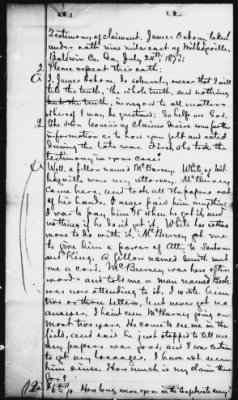 Testimony of claimant, James Osborn, taken
under oath nine miles east of Milledgeville,
Baldwin Co. Ga., July 24th, 1873:
Q Please repeat this oath:
A I, James Osborn, do solemnly swear that I will
tell the truth, the whole truth, and nothing
but the truth, in regard to all matters
whereof I may be questioned: So help me God.
Q The Com. having claims desire
information as to how you felt and acted
during the late war. First, who took the
testimony in your case?
A Well, a fellow named McBurney. White of Mil-
ledgeville were my attorney. McBurney
came here, and took all the papers out
of his hands. I never paid him anything
I was to pay him if when he got it and
nothing if he don't get it. White has nothing
more to do with it. McBurney got me
to give him a power of Att. to
and King. A fellow named Smith sent
me a card. McBurney was here after-
wards and told me a man named
was now attending to it. I wrote him
two or three letters, but never got no
answer. I haint seen McBurney going on
most two years. He come to see me in the
field, and said he just stopped to tell me
my papers was good, and I was certain
to get my . I have not seen
him since. How much is my claim
for?
Q How long were you in the Confederate army?